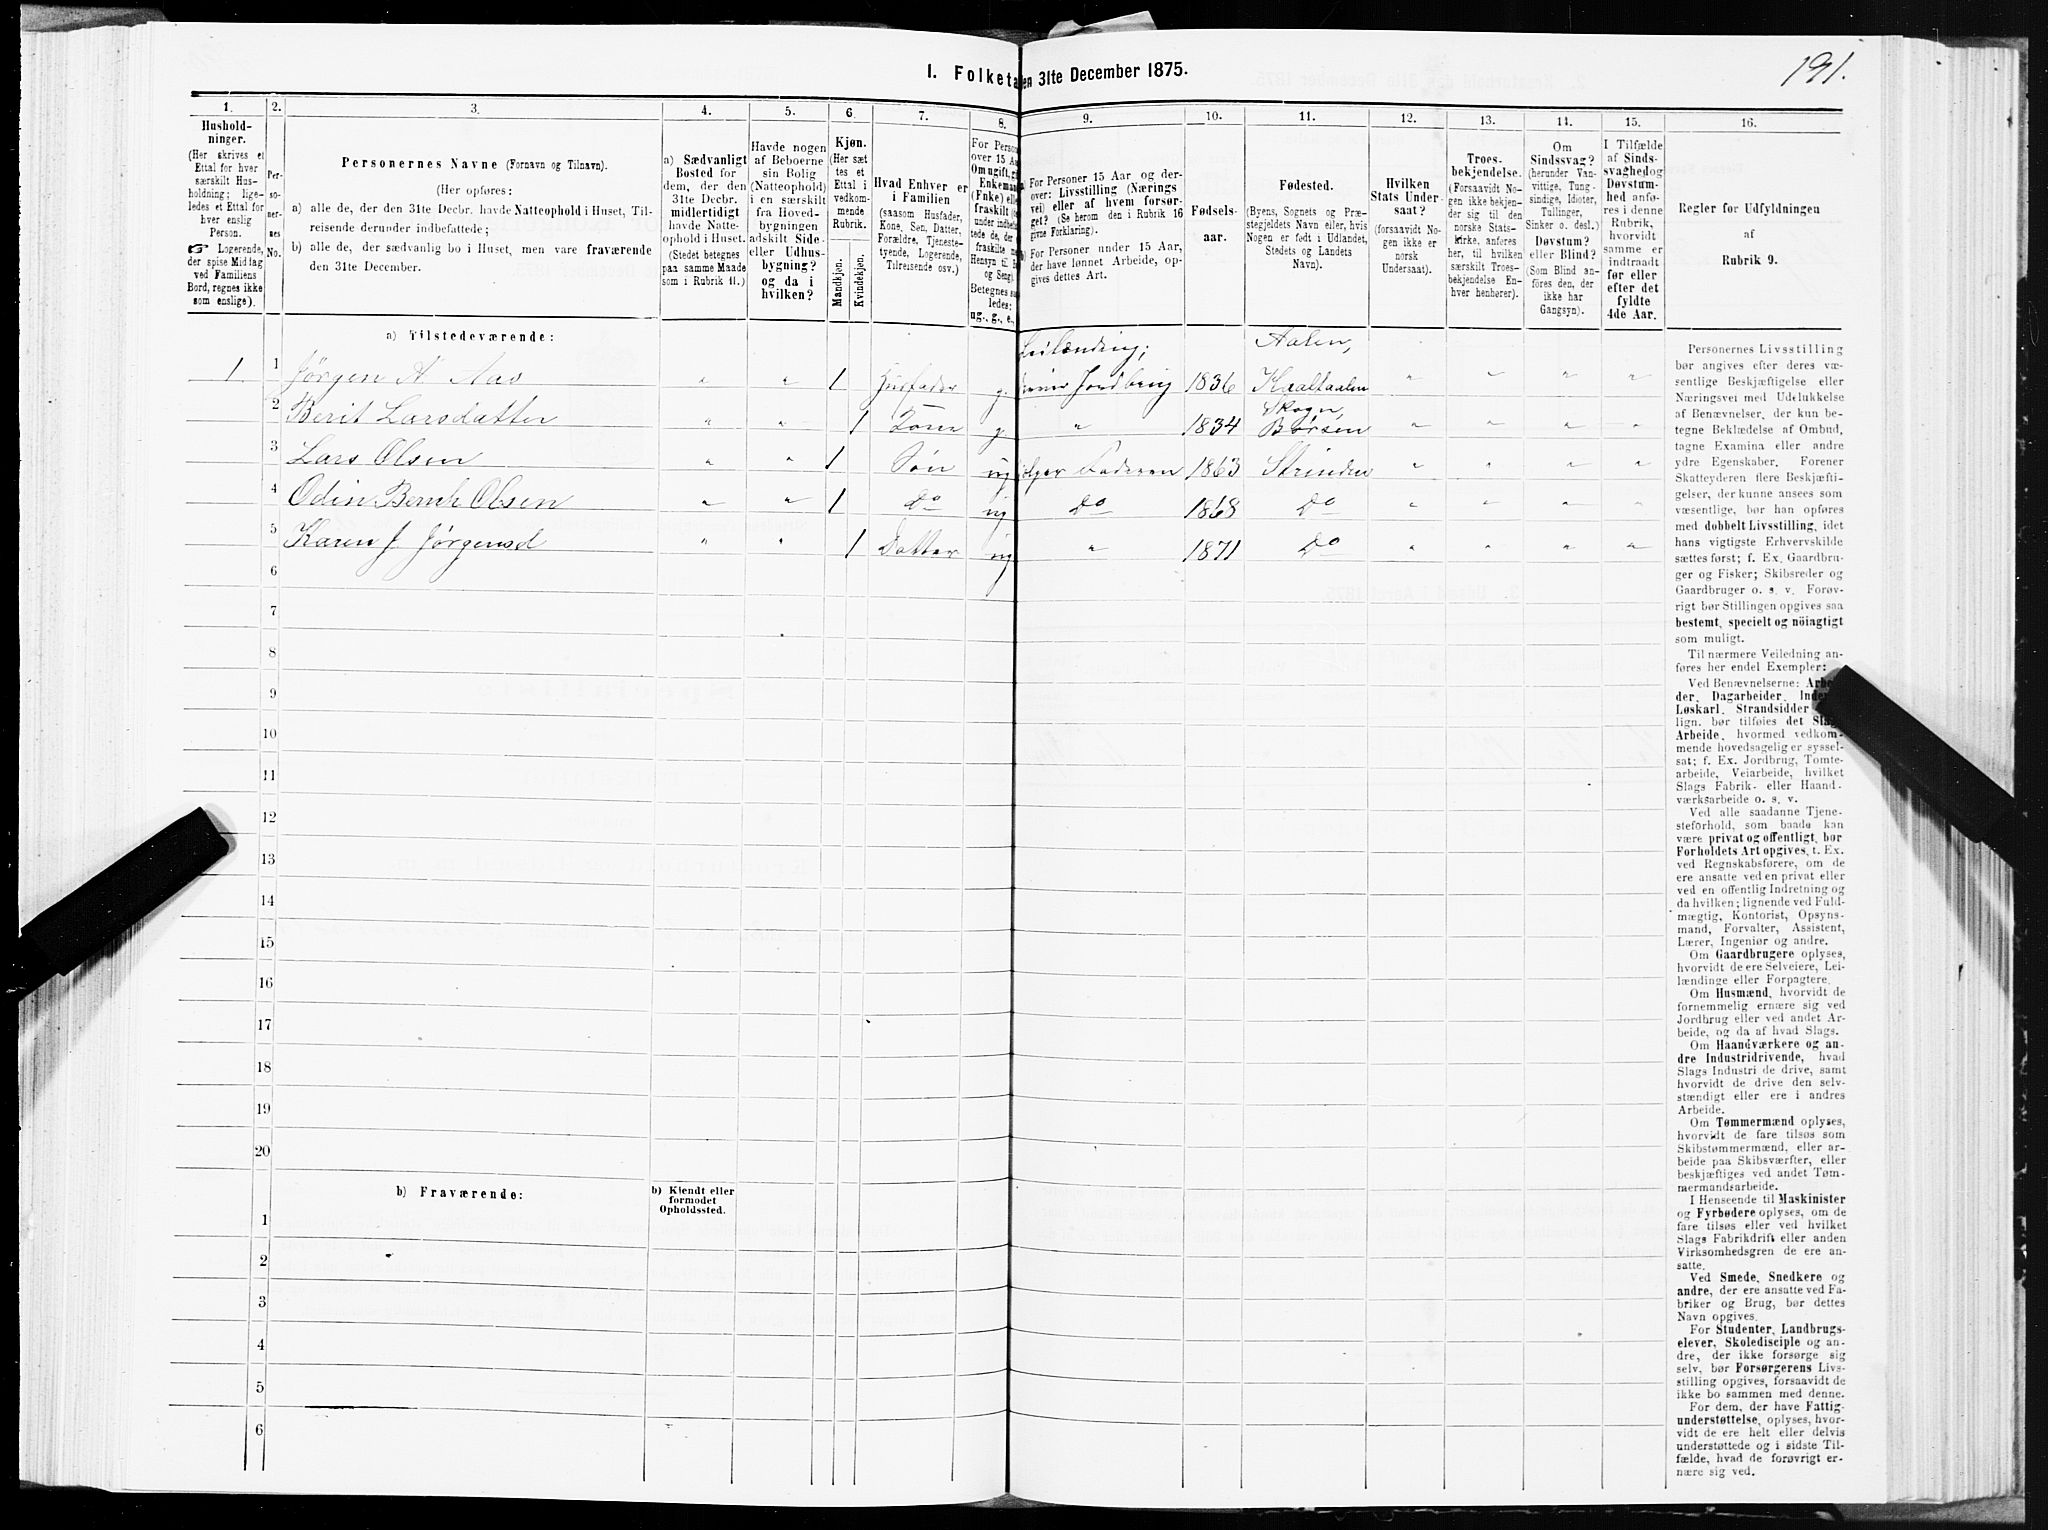 191.
I. Folketa en 31te December 1875.
1. 2. 3. 4. 5. 6. 7. 8. 9. 10. 11. 12. 13. 14. 15. 16.
Hushold-
ninger.
(Her skrives et
Ettal for hver
særskilt Hus-
holdning; lige-
ledes et Ettal for
hver enslig
Person.
☞ Logerende,
der spise Middag
ved Familiens
Bord, regnes ikke
som enslige).
Per-
so-
ner-
nes
No.
Personernes Navne (Fornavn og Tilnavn).
(Her opføres:
a) alle de, der den 31te Decbr. havde Natteophold i Huset, Til-
reisende derunder indbefattede;
b) alle de, der sædvanlig bo i Huset, men vare fraværende
den 31te December.
a) Sædvanligt
Bosted for
dem, der den
31te Decbr.
midlertidigt
havde Natte-
ophold i Huset.
(Stedet betegnes
paa samme Maade
som i Rubrik 11.)
Havde nogen
af Beboerne
sin Bolig
(Natteophold)
i en særskilt
fra Hoved-
bygningen
adskilt Side-
eller Udhus-
bygning?
og da i
hvilken?
Kjøn.
(Her sæt
tes et
Ettal i
vedkom-
mende
Rubrik.
Mandkjøn.
Kvindekjøn.
Hvad Enhver er
i Familien
(saasom Husfader,
Kone, Søn, Datter,
Forældre, Tjeneste-
tyende, Logerende,
Tilreisende osv.)
For Person
over 15 Aa
Om ugift, gi
Enkemand
(Fnke) elle
fraskilt (s
under indbe
tede de, der
fraskilte m
Hensyn til B
og Seng).
Betegnes sa
ledes:
ug., g., e.,
For Personer 15 Aar og der-
over: Livsstilling (Nærings
vei) eller af hvem forsør-
get? (Se herom den i Rubrik 16
givne Forklaring).
For Personer under 15 Aar,
der have lønnet Arbeide, op-
gives dettes Art.
Fødsels-
aar.
Fødested.
(Byens, Sognets og Præ-
stegjeldets Navn eller, hvis
Nogen er født i Udlandet,
Stedets og Landets
Navn).
Hvilken
Stats Under-
saat?
(forsaavidt No-
gen ikke er
norsk
Undersaat).
Troes-
bekjendelse.
(Forsaavidt No-
gen ikke bekjen-
der sig til den
norske Stats-
kirke, anføres
her, til hvilken
særskilt Troes-
bekjendelse En-
hver henhører).
Om
Sindssvag?
(herunder Van-
vittige, Tung-
sindige, Idioter,
Tullinger,
Sinker o. desl.)
Døvstum?
eller Blind?
(Som Blind an-
føres den, der
ikke har
Gangsyn).
I Tilfælde
af Sinds-
svaghed og
Døvstum-
hed anfø-
res i denne
Rubrik,
hvorvidt
samme er
indtraadt
før eller
efter det
fyldte
4de Aar.
Regler for Udfyldningen
af
Rubrik 9.
a) Tilstedeværende:
Leilænding; Aalen,
1 1 Jørgen A Aas " " 1 Husfader g. Jordbrug 1836 " " " "
Skogn,
2 Berit Larsdatter " " 1 Kone g " 1834 Børsen " " " "
3 Lars Olsen " " 1 Søn ug Faderen 1863 Strinden " " " "
4 Odin Bernh Olsen " " 1 Do ug Do 1868 Do " " " "
5 Karen J. Jørgensd " " 1 Datter ug " 1871 Do " " " "
6
7
8
9
10
11
12
13
14
15
16
17
18
19
20
b) Fraværende: b) Kjendt eller
formodet
Opholdssted.
1
2
3
4
5
6
Personernes Livsstilling
bør angives efter deres væ-
sentlige Beskjæftigelse eller
Næringsvei med Udelukkelse
af Benævnelser, der kun be-
tegne Beklædelse af Ombud,
tagne Examina eller andre
ydre Egenskaber. Forener
Skatteyderen flere Beskjæfti-
gelser, der kunne ansees som
væsentlige, bør han opføres
med dobbelt Livsstilling, idet
hans vigtigste Erhvervskilde
sættes først; f. Ex. Gaardbru-
ger og Fisker; Skibsreder og
Gaardbruger o. s. v. Forøv-
rigt bør Stillingen opgives saa
bestemt, specielt og nöiagtigt
som muligt.
Til nærmere Veiledning an-
føres her endel Exempler:
Ved Benævnelserne: Arbei
der, Dagarbeider, Inder
Løskarl, Strandsidder
lign. bør tilføies det Slags
Arbeide, hvormed vedkom-
mende hovedsagelig er syssel-
sat; f. Ex. Jordbrug, Tomte-
arbeide, Veiarbeide, hvilket
Slags Fabrik- eller Haand-
værksarbeide o. s. v.
Ved alle saadanne Tjene-
steforhold, som baade kan
være privat og offentligt, bør
Forholdets Art opgives, t. Ex.
ved Regnskabsførere, om de
ere ansatte ved en privat eller
ved en offentlig Indretning og
da hvilken; lignende ved Fuld-
mægtig, Kontorist, Opsyns-
mand, Forvalter, Assistent,
Lærer, Ingeniør og andre.
Om Gaardbrugere oplyses,
hvorvidt de ere Selveiere, Lei-
lændinge eller Forpagtere.
Om Husmænd, hvorvidt de
fornemmelig ernære sig ved
Jordbrug eller ved andet Ar-
beide, og da af hvad Slags.
Om Haandværkere og an-
dre Industridrivende, hvad
Slags Industri de drive, samt
hvorvidt de drive den selv-
stændigt eller ere i andres
Arbeide.
Om Tømmermænd oplyses,
hvorvidt de fare tilsøs som
Skibstømmermænd, eller ar-
beide paa Skibsværfter, eller
beskjæftiges ved andet Tøm-
mermandsarbeide.
I Henseende til Maskinister
og Fyrbødere oplyses, om de
fare tilsøs eller ved hvilket
Slags Fabrikdrift eller anden
Virksomhedsgren de ere an-
satte.
Ved Smede, Snedkere og
andre, der ere ansatte ved Fa-
briker og Brug, bør dettes
Navn opgives.
For Studenter, Landbrugs-
elever, Skoledisciple og an-
dre, der ikke forsørge sig
selv, bør Forsørgerens Livs-
stilling opgives, forsaavidt de
ikke bo sammen med denne.
For dem, der have Fattig-
understøttelse, oplyses, hvor-
vidt de ere helt eller delvis
understøttede og i sidste Til-
fælde, hvad de forøvrigt er-
nære sig ved.